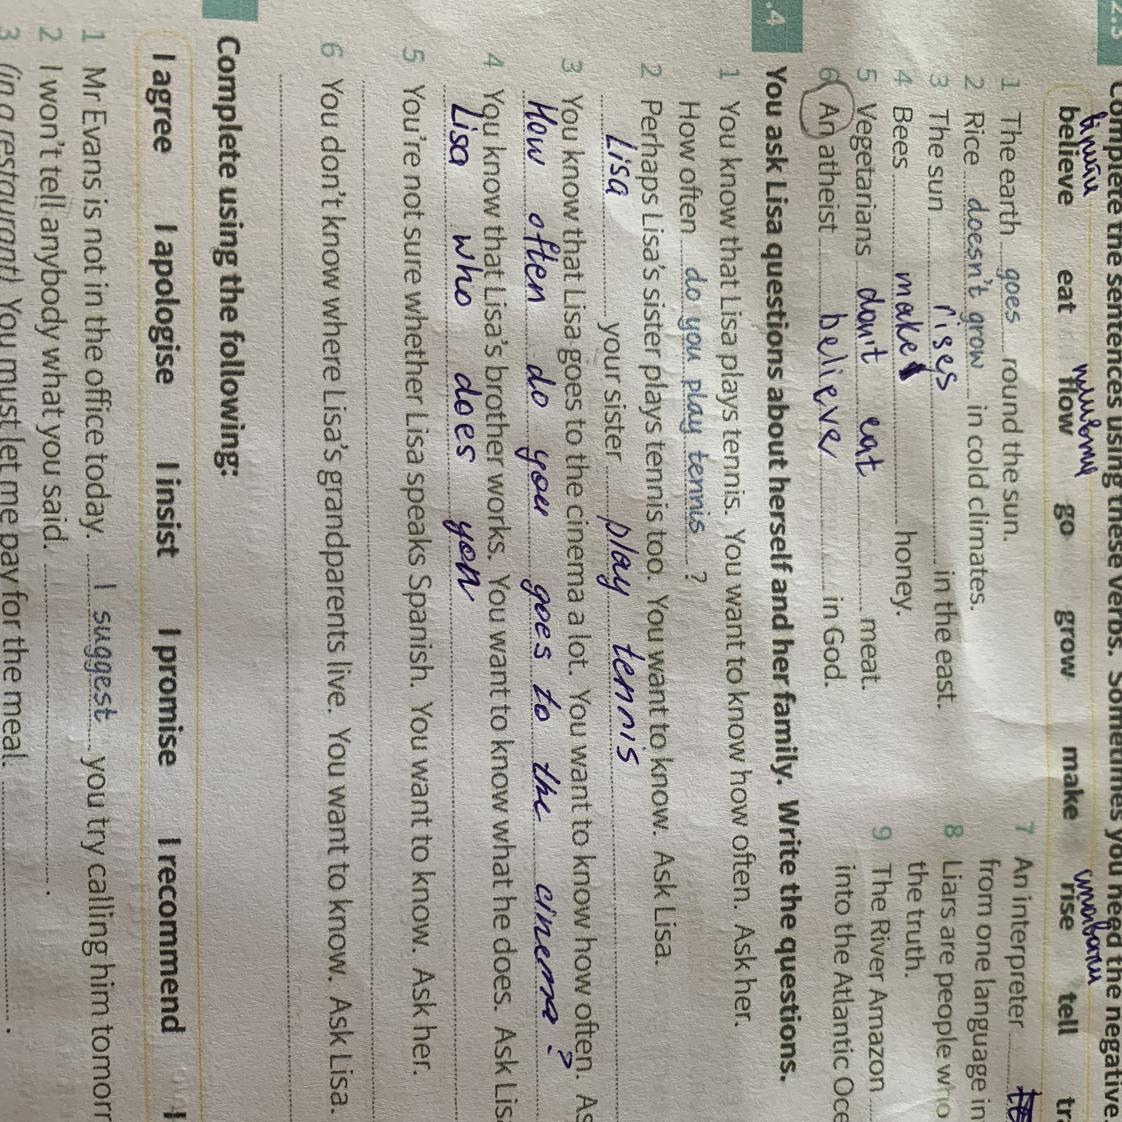 2.3
Complete the sentences using these verbs. Sometimes you need the negative.
believe eat flow go grow make rise tell tra
1 The earth goes round the sun.
2 Rice doesn't grow in cold climates.
3 The sun rises in the east.
4 Bees make honey.
5 Vegetarians don't eat meat.
6 An atheist believe in God.
7 An interpreter
from one language in
8 Liars are people who
the truth.
9 The River Amazon
into the Atlantic Oce
.4
You ask Lisa questions about herself and her family. Write the questions.
1 You know that Lisa plays tennis. You want to know how often. Ask her.
How often do you play tennis ?
2 Perhaps Lisa's sister plays tennis too. You want to know. Ask Lisa.
Lisa your sister play tennis
3 You know that Lisa goes to the cinema a lot. You want to know how often. As
How often do you goes to the cinema?
4 You know that Lisa's brother works. You want to know what he does. Ask Lis
Lisa who does you
5 You're not sure whether Lisa speaks Spanish. You want to know. Ask her.
6 You don't know where Lisa's grandparents live. You want to know. Ask Lisa.
Complete using the following:
I agree I apologise I insist I promise I recommend I
1 Mr Evans is not in the office today. I suggest you try calling him tomorr
2 I won't tell anybody what you said. .
3 (in a restaurant) You must let me pay for the meal. .